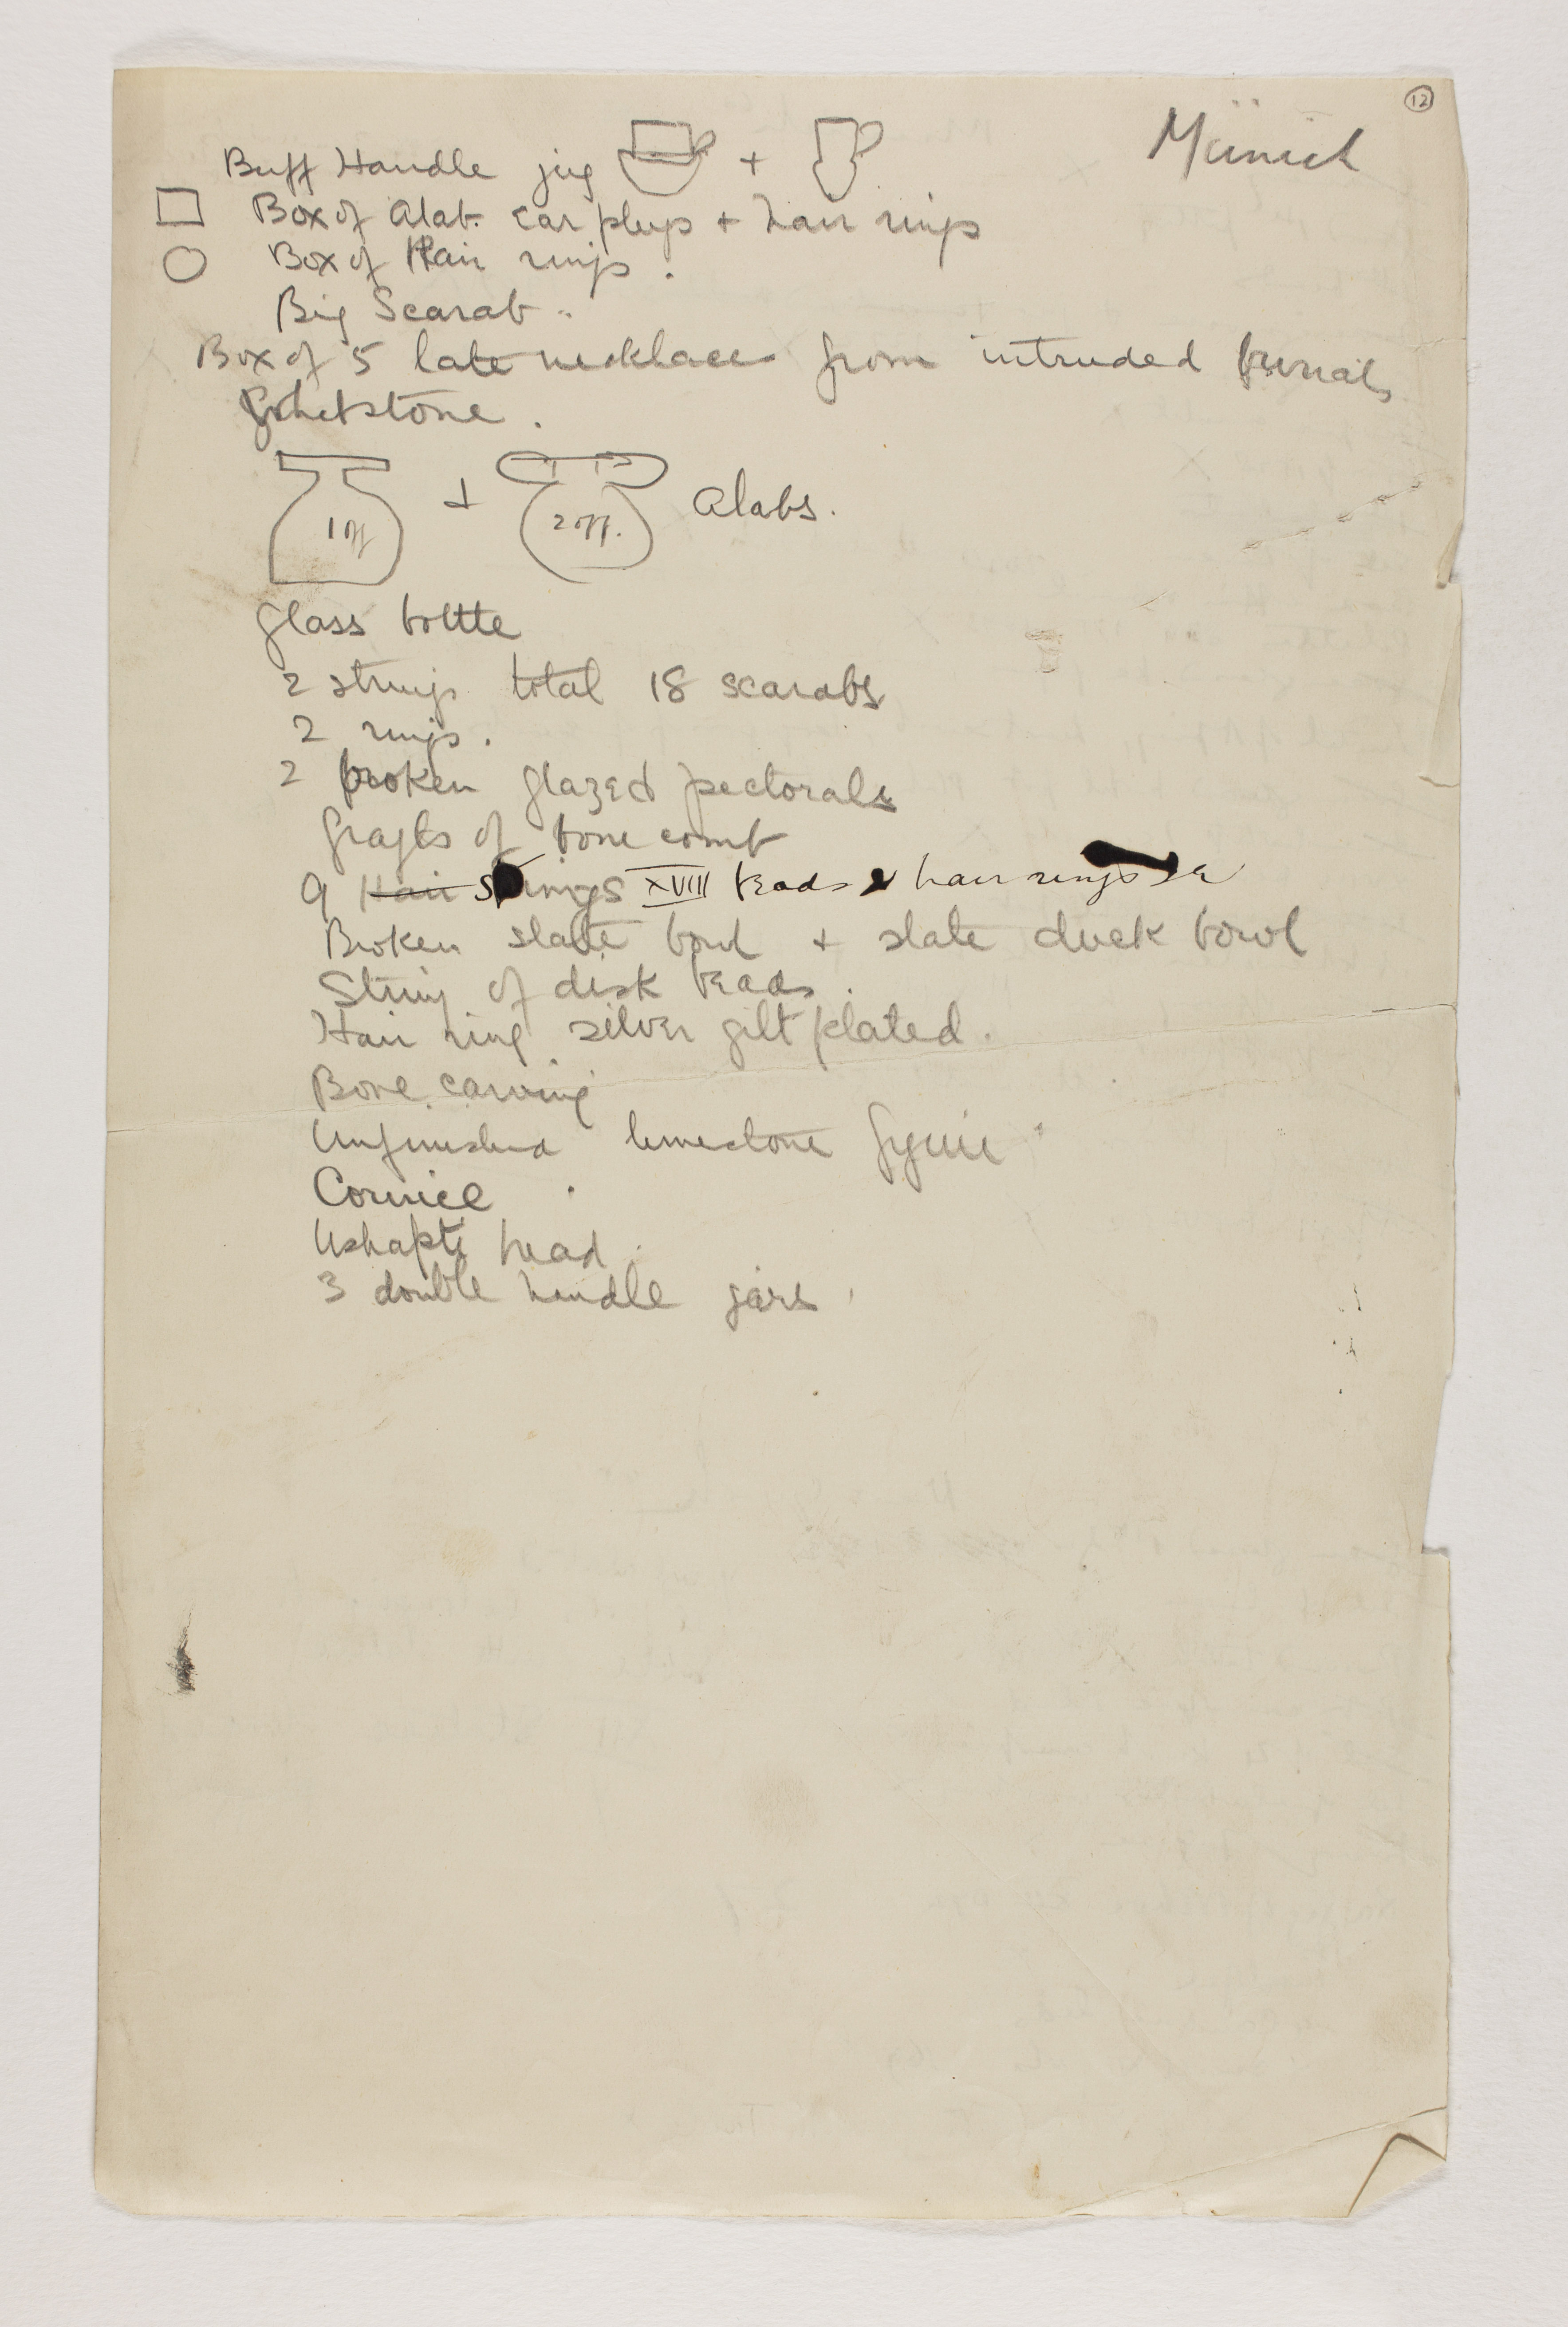 12
Münich
Buff Handle jug +
Box of Alab. ear plugs + hair rings
Box of Hair rings.
Big Scarab.
Box of 5 late necklaces from intruded burials
Whetstone.
1 off + 2 off. Alabs.
Glass bottle
2 strings total 18 scarabs
2 rings.
2 broken glazed pectorals
Fragts of bone comb
9 Hair strings XVIII beads & hair rings
Broken slate bowl + slate duck bowl
String of disk beads.
Hair ring silver gilt plated.
Bone carving
Unfinished limestone figure
Cornice
Ushabti head.
3 double handle jars